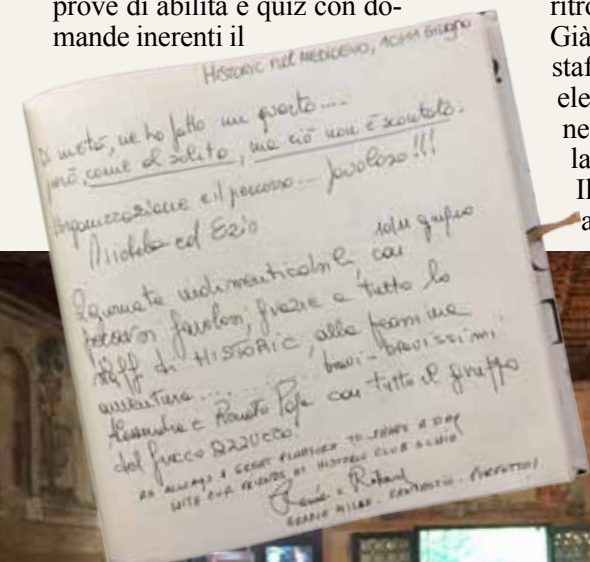 prove di abilità e quiz con do-
mande inerenti il
ritro
Già
staf
ele
ne
la
Il
a
HISTORIC NEL MEDIOEVO, 10/11 GIUGNO
Di metà, ne ho fatto un quarto....
però, come al solito, ma ciò non è scontato:
Organizzazione e il percorso.... favoloso!!!
ed Ezio
10/11 giugno
2 giornate indimenticabili, con
percorsi favolosi, grazie a tutto lo
staff di HISTORIC, alla prossima
avventura......... bravi-bravissimi
Alessandra e Renato con tutto il gruppo
del fuoco AZZURRO.
AS ALWAYS A GREAT PLEASURE TO SHARE A DAY
WITH OUR FRIENDS OF HISTORIC CLUB SCHIO
Richard
GRAZIE MILLE - FANTASTIC - PERFETTO!